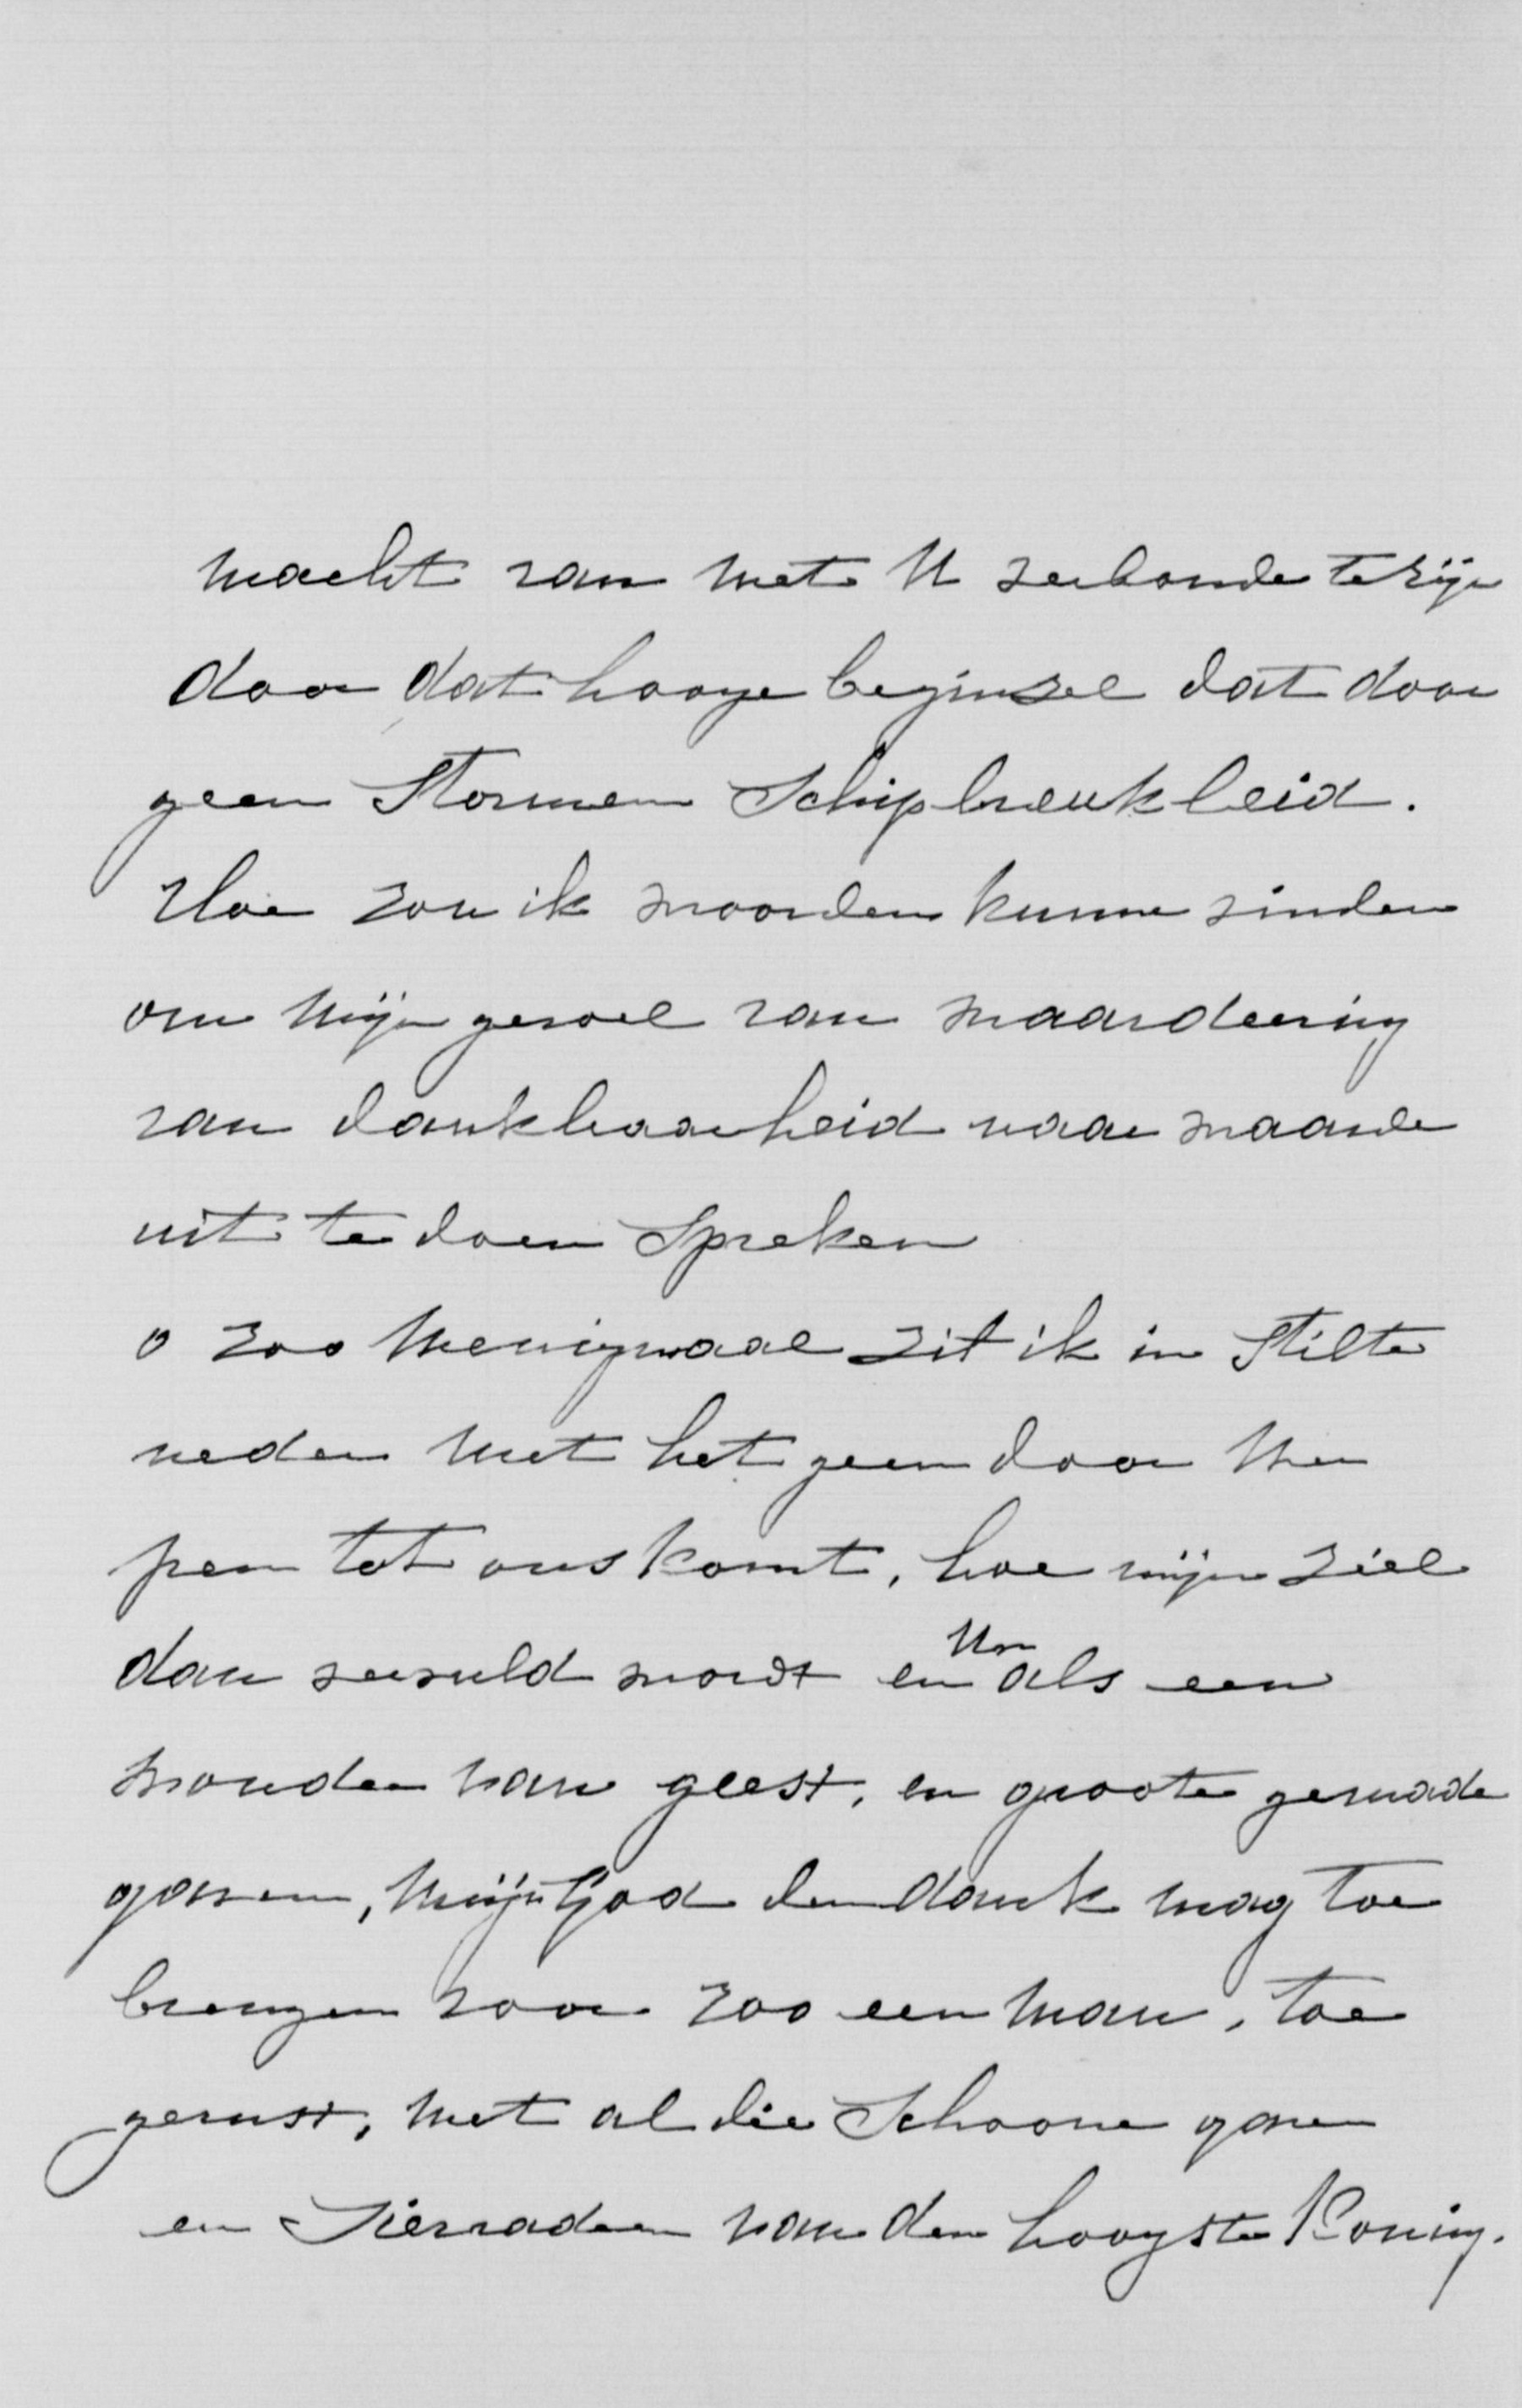 macht van met U verbonde te zijn
door dat hooge beginzel dat door
geen Stormen Schipbreuk leid.
Hoe zou ik woorden kunne vinden
om mijn gevoel van waardeering
van dankbaarheid naar waarde
uit te doen Spreken
o zoo menigmaal zit ik in Stilte
neder met het geen door Uw
pen tot ons komt, hoe mijn ziel
dan vervuld wordt en Uw als een
wonder van geest, en groote genade
gaven, mijn God den dank mag toe
brengen voor zoo een man, toe
gerust, met al die Schoone gaven
en Sierraden van den hoogste Koning.